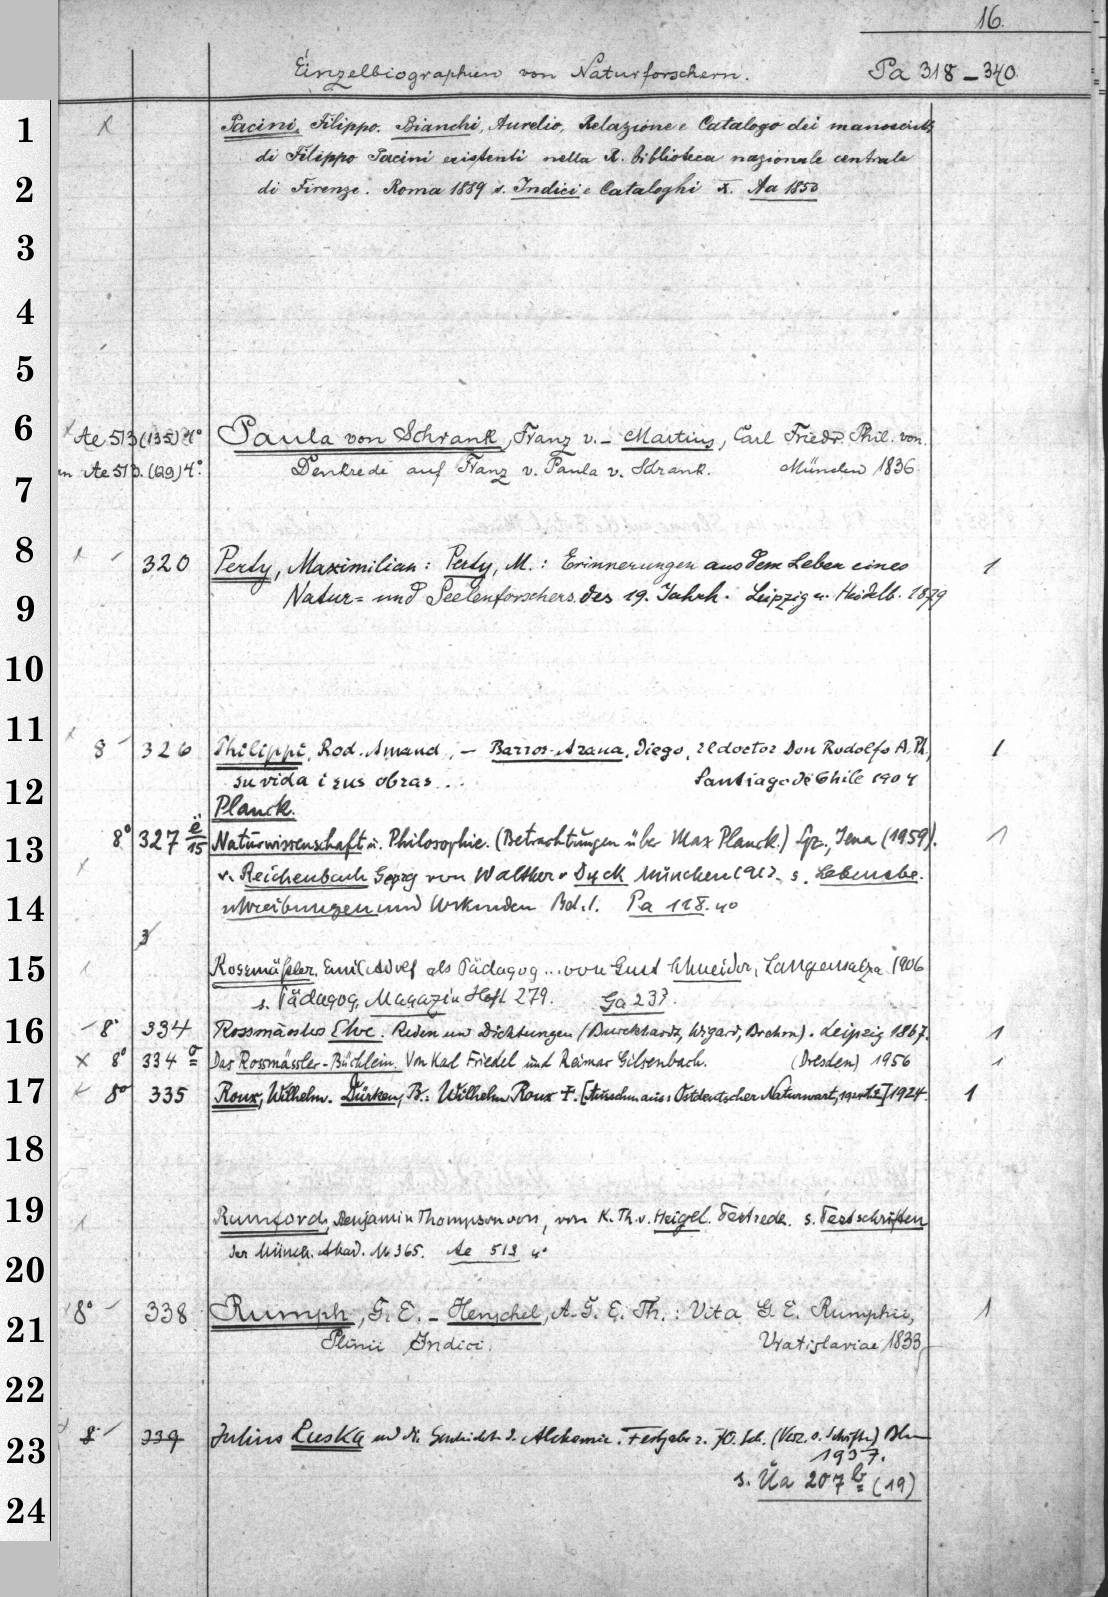 16.
Einzelbiographien von Naturforschern. Pa 318-340
1 x Pacini, Filippo. Bianchi, Aurelio, Relazione e Catalogo dei manoscritti
di Filippo Pacini esistenti nella R. biblioteca nazionale centrale
2 di Firenze. Roma 1889 s. Indici e Cataloghi X. Aa 1850
3
4
5
6 x Ae 513 (135) 4° Paula von Schrank, Franz v. - Martius, Carl Friedr. Phil. von.
7 Ae 513. (129) 4°. Denkrede auf Franz v. Paula v. Schrank. München 1836.
8 320 Perty, Maximilian: Perty, M.: Erinnerungen aus dem Leben eines 1
9 Natur= und Seelenforschers des 19. Jahrh. Leipzig u. Heidelb. 1879
10
11 x 8 - 326 Philippi, Rod. Amand, - Barros-Arana, Diego, el doctor Don Rodolfo A. Ph, 1
12 su vida i sus obras ... Santiago de Chile 1904
Planck.
13 8° 327 ë/15 Naturwissenschaft u. Philosophie. (Betrachtungen über Max Planck.) Lpz., Jena (1959). 1
v. Reichenbach Georg von Walther v Dyck München 1912. s. Lebensbe.
14 schreibungen und Urkunden Bd. 1. Pa 128. 4°
15 Rossmäßler, Emil Adolf als Pädagog ... von Gust Schneider, Langensalza 1906
s. Pädagog. Magazin Heft 279. Ga 237.
16 - 8° 334 Rossmässlers Ehre. Reden und Dichtungen (Burckhardt, Wigard, Brehm). Leipzig 1867. 1
x 8° 334 a Das Rossmässler-Büchlein. Von Karl Friedel und Reimar Gilsenbach. (Dresden) 1956 1
17 8° 335 Roux, Wilhelm. Dürken, B.: Wilhelm Roux †. [Ausschn. aus: Ostdeutscher Naturwart, 1924] 1924. 1
18
19 Rumford, Benjamin Thompson von, von K. Th. v. Heigel. Festrede. s. Festschriften
der Münch. Akad. № 365. Ae 513 4°
20
8° - 338 Rumph, G. E. - Henschel, A. G. E. Th.: Vita G. E. Rumphii, 1
21 Plinii Indici. Vratislaviae 1833
22
23 8 339 Julius Ruska und die Geschichte d. Alchemie. Festgabe z. 70. Geb. (Verz. d. Schrift.) Bln
1937.
24 s. Üa 207 b (19)